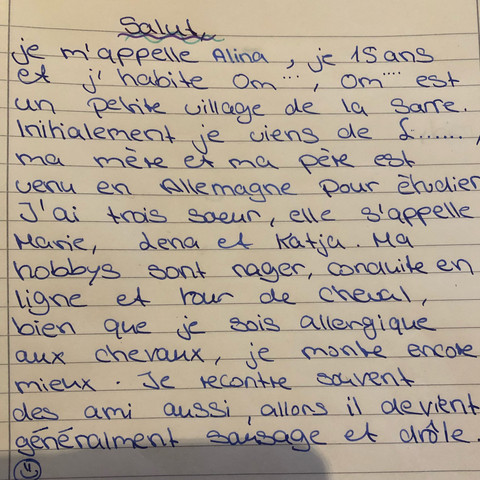 Salut
je m'appelle Alina, je 15 ans
et j'habite Om...., Om.... est
un petite village de la Sarre.
Initialement je viens de L......,
ma mère et ma père est
venu en Allemagne pour ètudier
J'ai trois soeur, elle s'appelle
Marie, Lena et Katja. Ma
hobbys sont nager, conduite en
ligne et tour de cheval,
bien que je sois allergique
aux chevaux, je monte encore
mieux. Je recontre souvent
des ami aussi, allors il devient
généralment sausage et drôle.